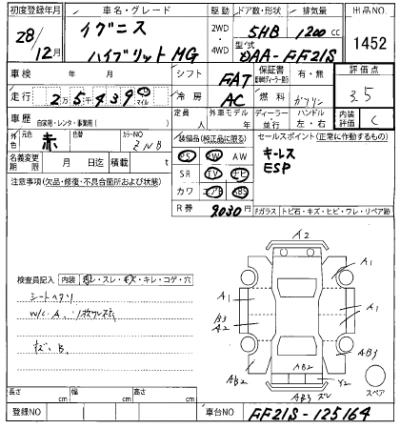 初度登録年月 車名・グレード 駆動 ドア数・形状 排気量 出品NO
28/12月 イグニス 2WD 5HB 1200cc 1452
ハイブリットMG 4WD 型式 DAA-FF21S
車検 年 月 シフト FAT 保証書 有・無 評価点
走行 2万5千439 マイル 冷房 AC 燃料 ガソリン 3.5
車歴 自家用・レンタ・事業用 定員 人 外車モデル 年 ディーラー 並行 ハンドル 左・右 内装評価 C
外色 元色 赤 カラーNO ZNB 装備品(純正品に限る) セールスポイント(正常に作動するもの)
PS PW AW キーレス
名義変更期限 月 日迄 積載 t SR TV ナビ ESP
注意事項(欠品・修復・不具合箇所および状態) カワ エアB ABS
R券 9030円 Fガラス トビ石・キズ・ヒビ・ワレ・リペア跡
A2
A1
検査員記入 内装 スレ・キズ・キレ・コゲ・穴
シートヘタリ
A1
W/C A.
A1
B3
A2
キズ B.
AB3
AB2
AB2
Y2
AB3
スペア
長さ cm 幅 cm 高さ cm
登録NO 車台NO FF21S-125164